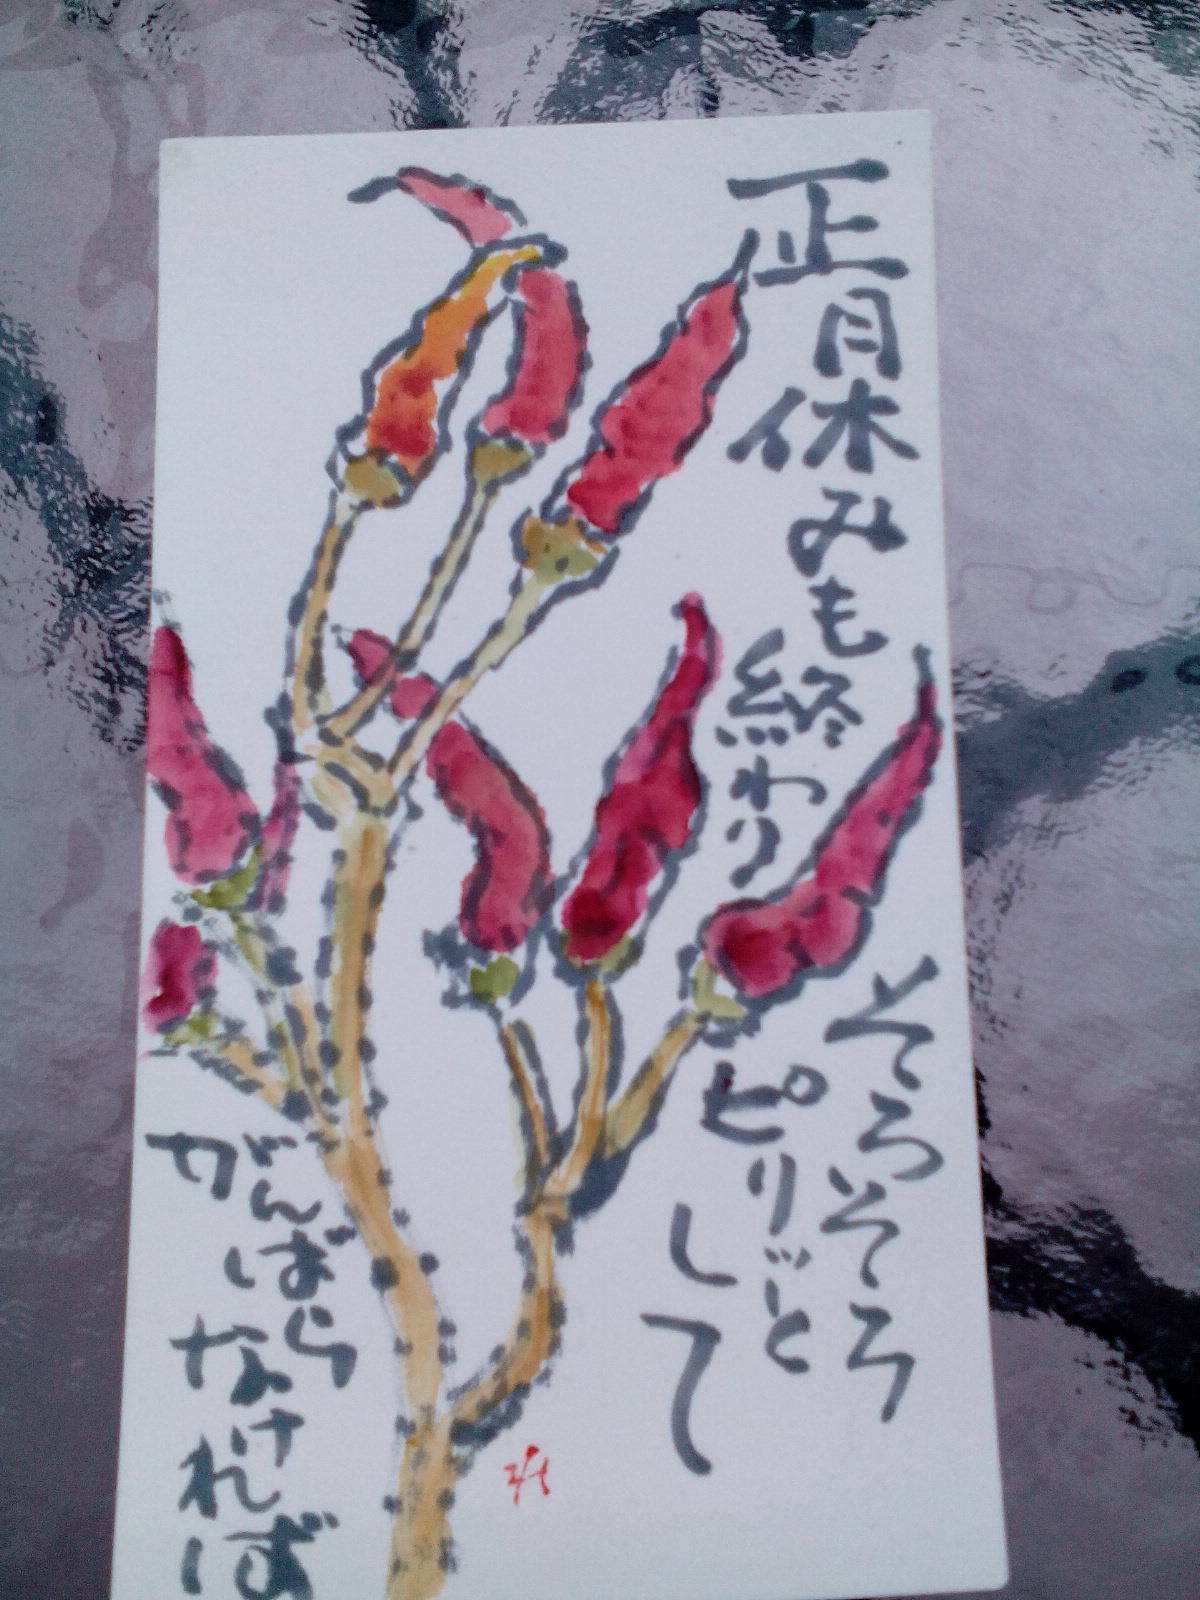 正月休みも
終わり
そろそろ
ピリッと
して
がんばら
なければ